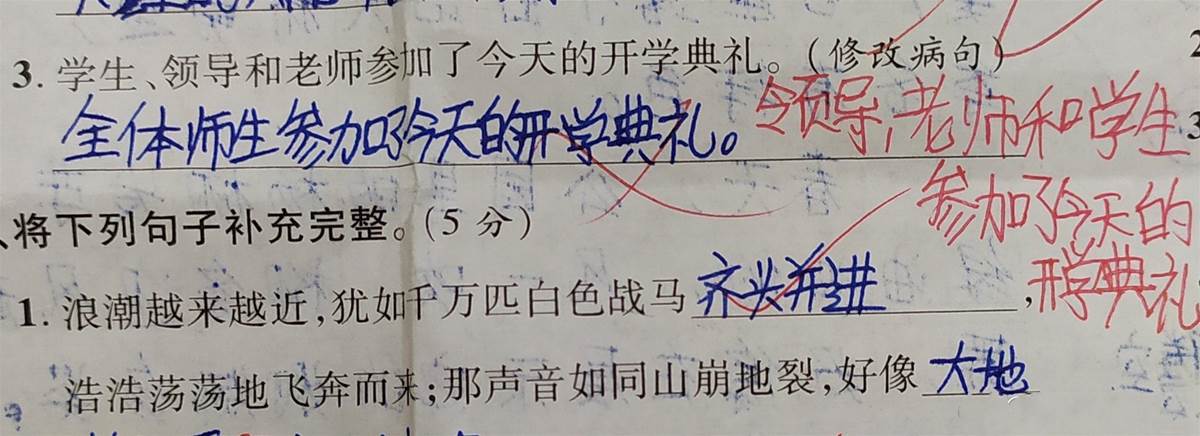 3. 学生、领导和老师参加了今天的开学典礼。(修改病句)
全体师生参加了今天的开学典礼。
领导,老师和学生
参加了今天的
开学典礼
将下列句子补充完整。(5 分)
1. 浪潮越来越近,犹如千万匹白色战马齐头并进,
浩浩荡荡地飞奔而来;那声音如同山崩地裂,好像大地